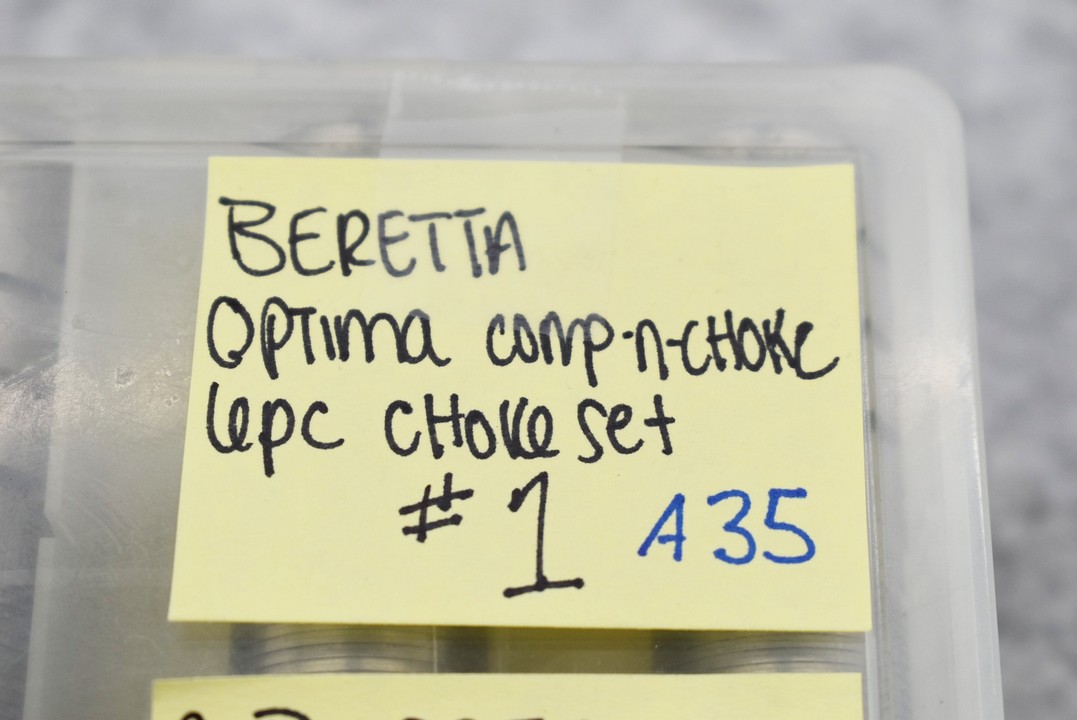 BERETTA
OPTima comp-n-CHOKE
6pc CHOKE set
#1 A35